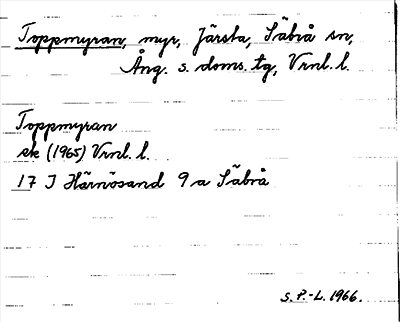 Toppmyran, myr, Järsta, Säbrå sn,
Ång. s. doms. tg, Vrnl. l.
Toppmyran
ek (1965) Vrnl. l.
17 J Härnösand 9 a Säbrå
S. P.-L. 1966.